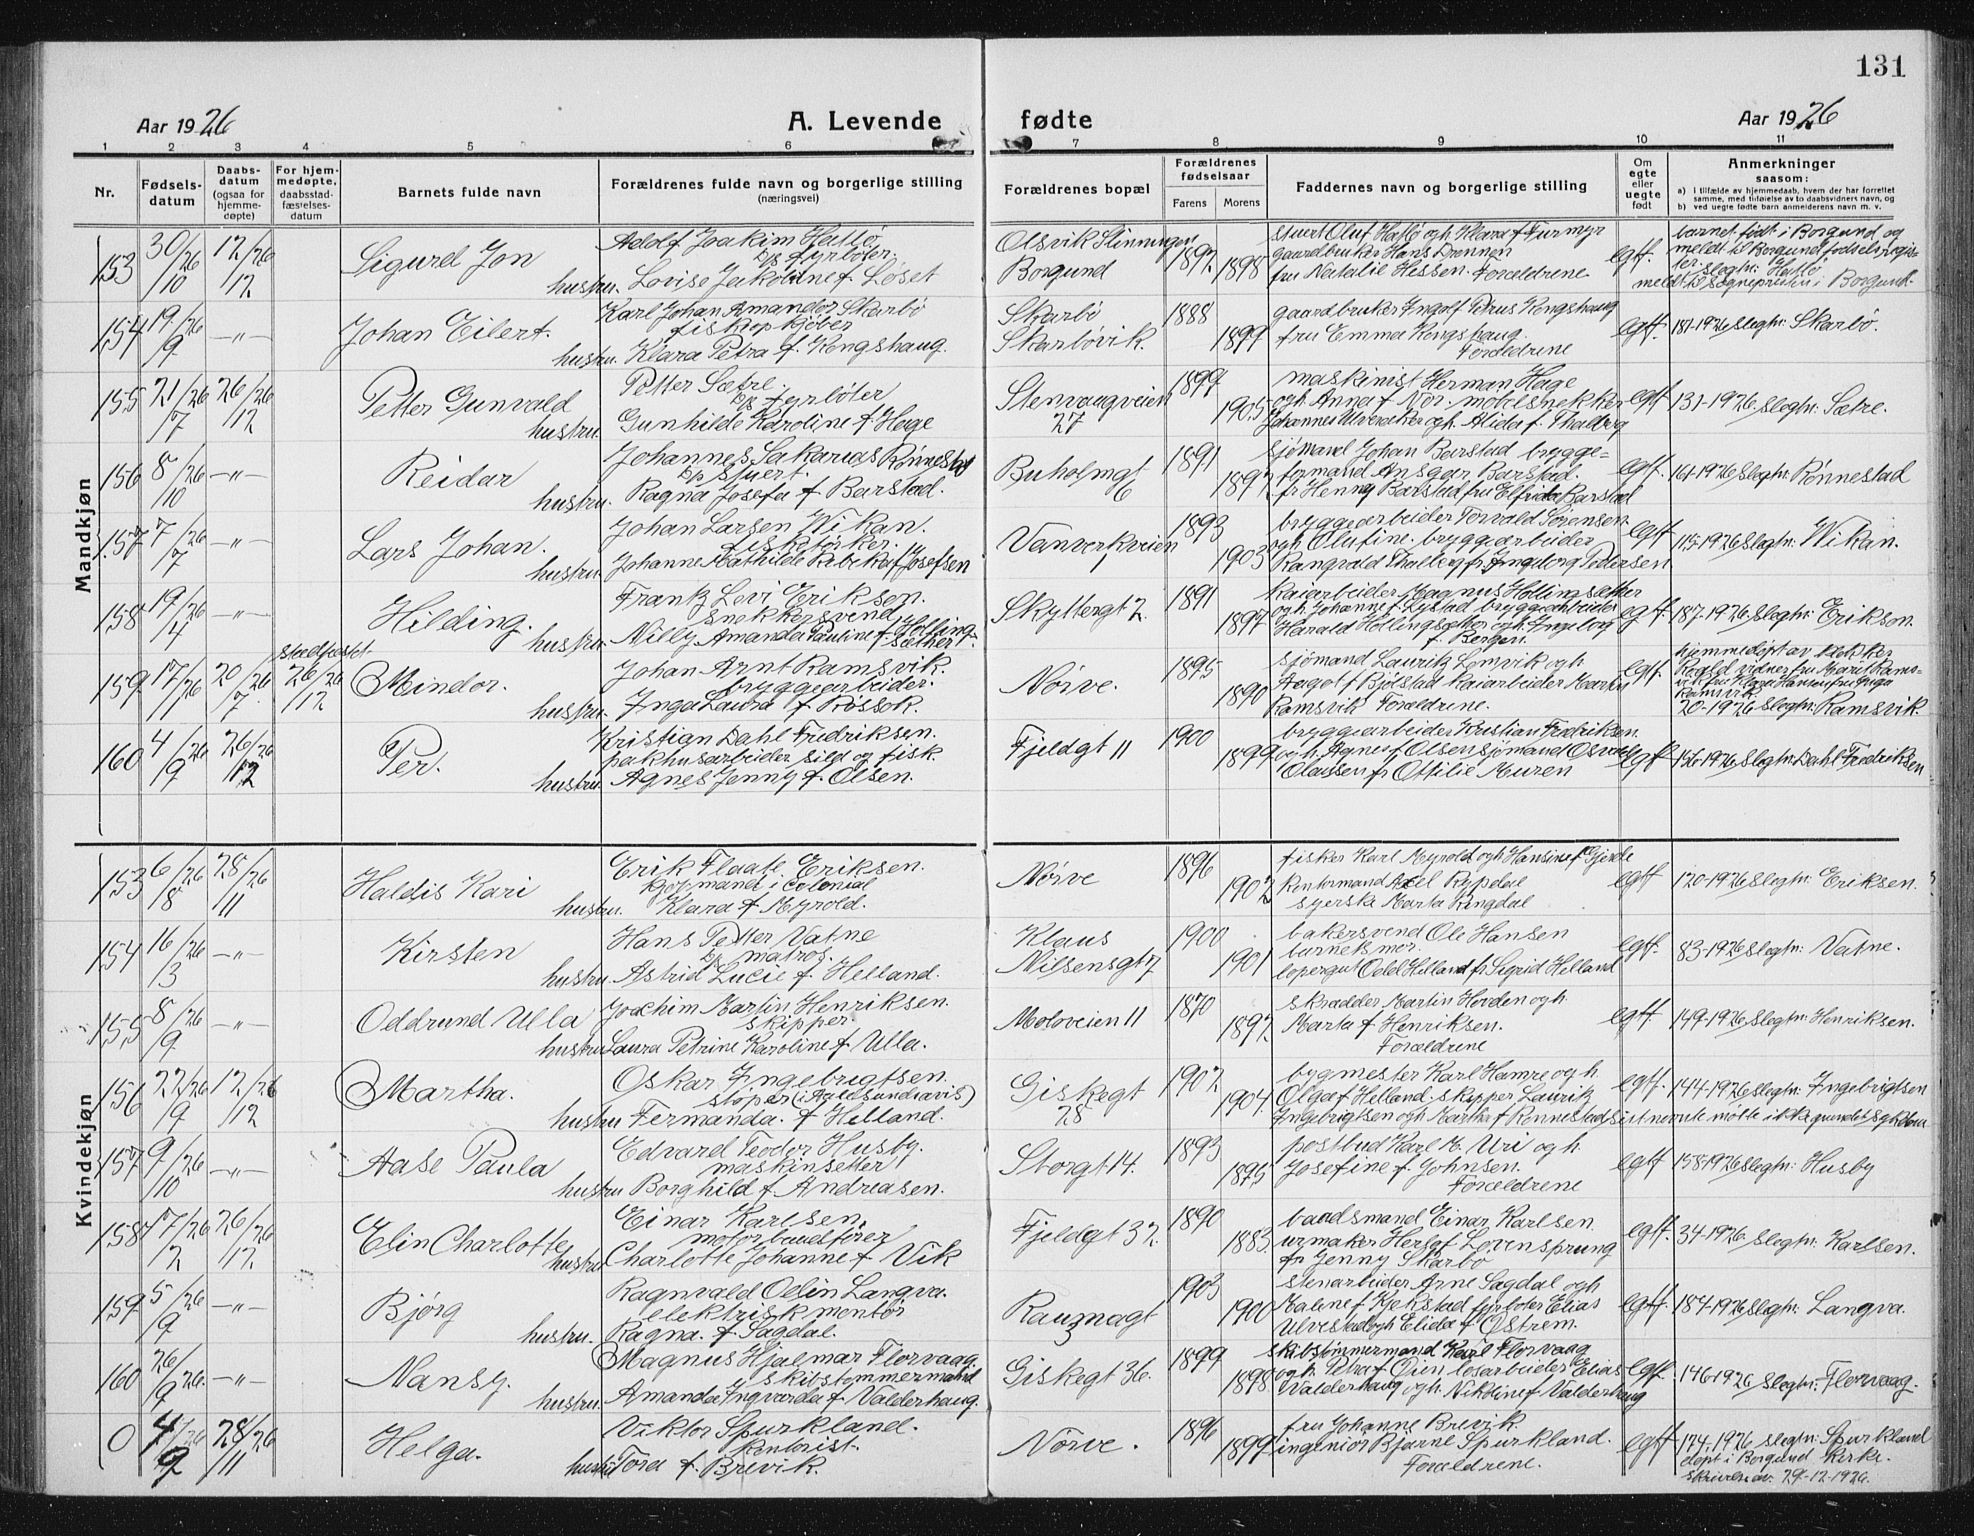 131
Aar 1926
A. Levende fødte
Aar 1926
1 2 3 4 5 6 7 8 9 10 11
Nr.
Fødsels-
datum
Daabs-
datum
(ogsaa for
hjemme-
døpte)
For hjem-
medøpte,
daabsstad-
fæstelses-
datum
Barnets fulde navn
Forældrenes fulde navn og borgerlige stilling
(næringsvei)
Forældrenes bopæl
Forældrenes
fødselsaar
Farens Morens
Faddernes navn og borgerlige stilling
Om
egte
eller
uegte
født
Anmerkninger
saasom:
a) I tilfælde av hjemmedaab, hvem der har forrettet
samme, med tilføielse av to daabsvidners navn, og
b) ved uegte fødte barn anmelderens navn m. v.
Mandkjøn
153 30/10 26 12/12 26 Sigurd Jon
Adolf Joakim Hatlø
D/s fyrbøter
hustru. Lovise Jakobine f. Løset
Olsvik Stinningen
Borgund
1897 1898
stuert Oluf Hatlø og h. Klara f Furmyr
gaardbruker Hans Drønnen
fru Natalie Hessen. Forældrene
egtf.
barnet født i Borgund og
meldt til Borgund fødselsregis-
ter. Slegtn: Hatlø
meldt til sognepresten i Borgund.
154 19/9 26 —"— Johan Eilert.
Karl Johan Amandor Skarbø
fiskeopkjøber
hustru. Klara Petra f. Kongshaug.
Skarbø
Skarbøvik.
1888 1899
gaardbruker Ingolf Petrus Kongshaug
fru Emma Kongshaug.
Forældrene
egtf.
181-1926 Slegtn: Skarbø.
155 21/7 26 26/12 26 Petter Gunvald
Petter Sætre.
D/s fyrbøter
hustru. Gunhilde Karoline f. Hage
Stenvaagveien
27
1899 1905
maskinist Herman Hage
og h. Anna f Nor. møbelsnekker
Johannes Ulveseter og h. Alida f. Thalberg
egtf
131-1926 Slegtn: Sætre.
156 8/10 26 —"— Reidar
Johannes Sakarias Rønnestad
D/s stuert.
hustru. Ragna Josefa f Barstad.
Buholmgt
6
1891 1897
sjømand Johan Barstad brygge-
formand Ansgar Barstad.
fr Henny Barstad fru Elfrida Barstad
egtf.
164-1926 Slegtn: Rønnestad
157 7/7 26 —"— Lars Johan.
Johan Larsen Wikan.
fisktørker.
hustru. Johanne Mathilde Rebekka f Josefsen
Vanverkveien
1893 1903
bryggearbeider Torvald Sørensen
og h Olufine. bryggearbeider
Rangvald Thalberg fr Ingeborg Pedersen
egtf
115-1926 Slegtn: Wikan.
158 19/4 26 —"— Hilding.
Frantz Levi Erikson.
snekkersvend
hustru. Nilly Amanda Pauline f Holling-
sæther.
Skyttergt 2.
1891 1897
kaiarbeider Magnus Hollingsæther
og h. Johanne f. Lystad bryggearbeider
Harald Hollingsæther og h. Ingeborg
f. Bergen.
egtf.
187-1926 Slegtn: Erikson.
159 17/1 26 20/7 26 stadfæstet 26/12 26 Mindor.
Johan Arnt Ramsvik.
bryggearbeider.
hustru. Inga Laura f Rossok.
Nørve.
1895 1890
sjømand Lauritz Lomvik og h
Aagot f Bjølstad kaiarbeider Martin
Ramsvik Forældrene.
egtf.
hjemmedøpt av klokker
Roald vidner fru Marit Rams-
vik fru Klara Hansen fru Inga
Ramsvik.
20-1926 Slegtn: Ramsvik.
160 4/9 26 26/12 26 Per.
Kristian Dahl Fredriksen.
pakhusarbeider sild og fisk.
hustru. Agnes Jenny f. Olsen.
Fjeldgt 11
1900 1899
bryggearbeider Kristian Fredriksen.
og h. Agnes f Olsen sjømand Osvald
Olaussen fr Ottilie Muren
egtf
156-1926 Slegtn: Dahl Fredriksen
Kvindekjøn
153 6/8 26 28/11 26 Haldis Kari
Erik Flaate Eriksen.
kjøpmand i Colonial
hustru. Klara f Myrold.
Nørve
1896 1902
fisker Karl Myrold og h Hansine f Gjerde
kontormand Axel Rypdal
syerske Marta Ringdal
egtf
120-1926 Slegtn: Eriksen.
154 16/3 26 —"— Kirsten
Hans Petter Vatne
D/s matros.
hustru. Astrid Lucie f. Helland.
Klaus
Nilsensgt 7
1900 1901
bakersvend Ole Hansen
barnets mor.
løpergut Odd Helland fr Sigrid Helland
egtf.
83-1926 Slegtn: Vatne.
155 8/9 26 —"— Oddrund Ulla
Joachim Martin Henriksen.
skipper.
hustru Laura Petrine Karoline f Ulla.
Moloveien 11
1870 1897
skrædder Martin Hovden og h.
Marta f Henriksen.
Forældrene
egtf.
149-1926 Slegtn: Henriksen.
156 22/9 26 12/12 26 Martha.
Oskar Ingebrigtsen.
støper (i Aalesundsavis)
hustru Fermanda. f Helland.
Giskegt
28
1902 1904
bygmester Karl Hamre og h.
Olga f Helland. skipper Laurik
Ingebrigtsen og h. Martha f Rønnestad, sistnevnte møtte ikke grundet sykdom
egtf.
144-1926 Slegtn: Ingebrigtsen
157 9/10 26 —"— Aase Paula
Edvard Teodor Husby.
maskinsetter
hustru Borghild f Andreasen.
Storgt 14.
1893 1895
postbud Karl M. Uri og h.
Josefine f. Johnsen.
Forældrene
egtf
158-1926 Slegtn: Husby
158 17/12 26 26/12 26 Elin Charlotte
Einar Karlsen.
motorbaadfører
hustru Charlotte Johanne f Vik
Fjeldgt 32.
1890 1883
baadsmand Einar Karlsen.
urmaker Herlof Løvensprung
fr Jenny Skarbø
egtf.
34-1926 Slegtn: Karlsen.
159 5/9 26 —"— Bjørg
Ragnvald Odin Langva.
elektrisk montør
hustru. Ragna. f Sagdal.
Raumagt
3
1903 1900
stenarbeider Arne Sagdal og h
Malene f Kjekstad fyrbøter Elias
Ulvestad og h Elida f Østrem.
egtf.
184-1926 Slegtn: Langva.
160 26/9 26 —"— Nansy.
Magnus Hjalmar Florvaag.
skibstømmermand
hustru. Amanda Ingvarda f Valderhaug.
Giskegt 36.
1899 1898
skibstømmermand Karl Florvaag
og h. Petra f Øien løsarbeider Elias
Valderhaug og h. Nikoline f Valderhaug
egtf.
146-1926 Slegtn: Florvaag.
0 4/9 26 28/11 26 Helga.
Viktor Spurkland.
kontorist.
hustru Tora f. Brevik.
Nørve.
1896 1899
fru Johanne Brevik
ingeniør Bjarne Spurkland.
Forældrene.
egtf
174-1926 Slegtn: Spurkland
døpt i Borgund kirke.
skrivelse av. 29-12-1926.